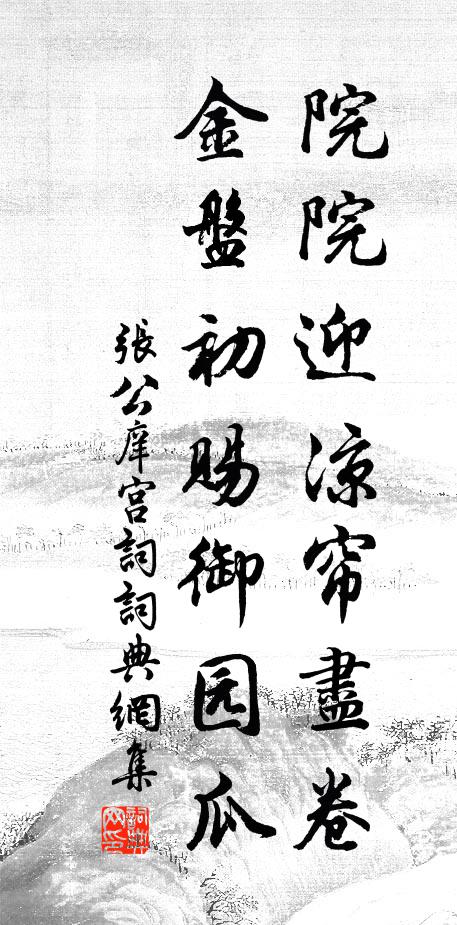 院院迎涼帘盡卷
金盤初賜御园瓜
張公庠宮詞詞典網集